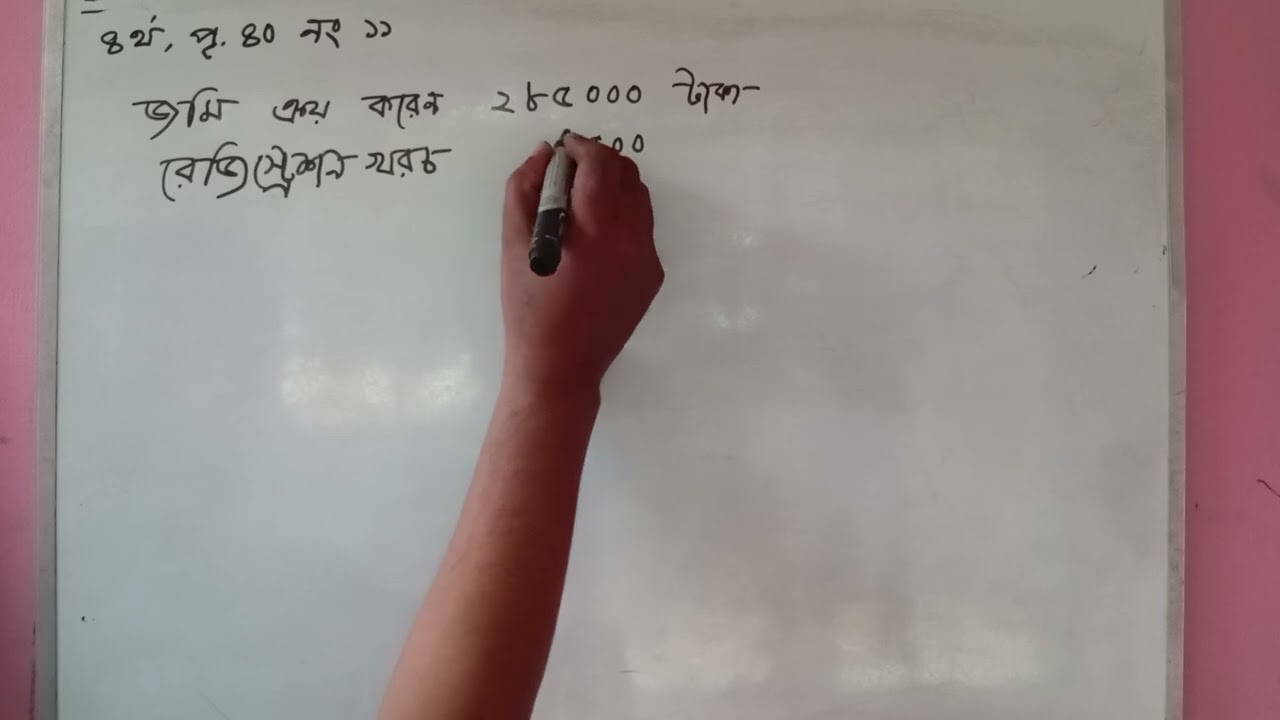 ৪র্থ, পৃ. ৪০ নং ১১
জমি ক্রয় করেন ২৮৫০০০ টাকা
রেজিস্ট্রেশন খরচ ৫০০